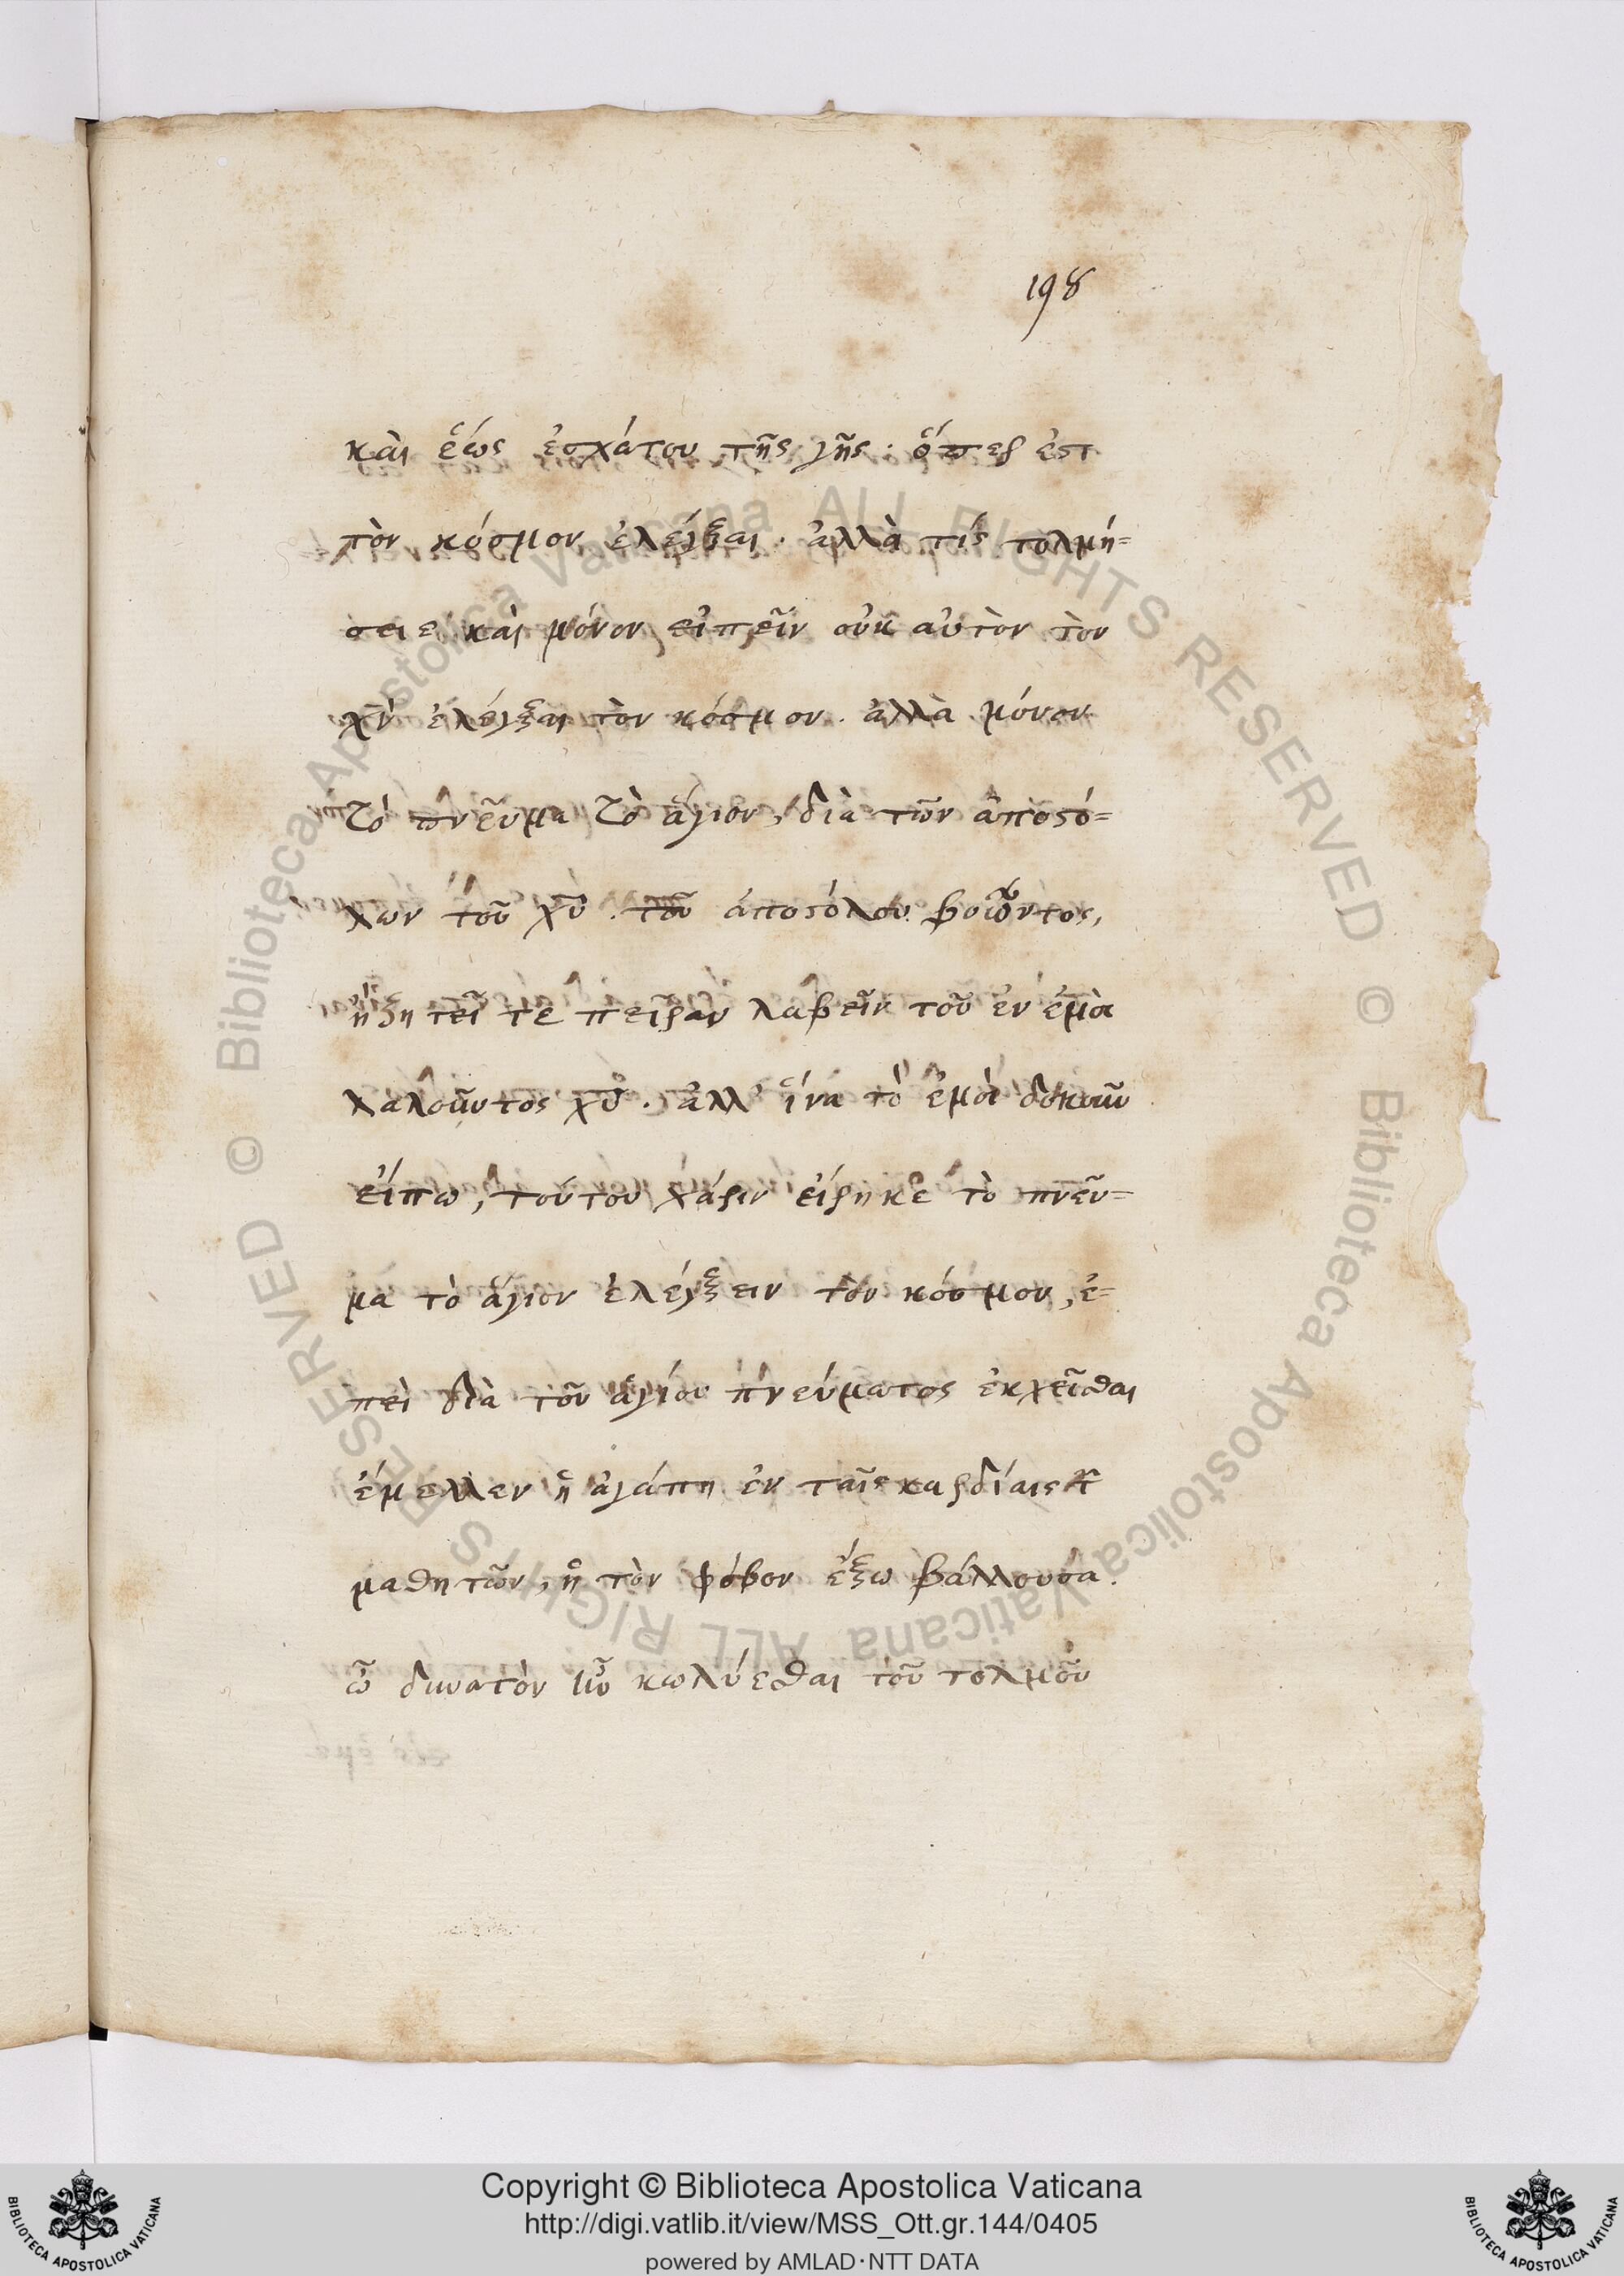 198
καὶ ἕως ἐσχάτου τῆς γῆς· ὅπερ ἐστ
τὸν κόσμον ἐλέγξαι· ἀλλὰ τίς τολμή=
σειε καὶ μόνον εἰπεῖν οὐκ αὐτὸν τὸν
χν ἐλέγξαι τὸν κόσμον. ἀλλὰ μόνον
τὸ πνεῦμα τὸ ἅγιον, διὰ τῶν ἀποστό=
λων τοῦ χυ. τοῦ ἀποστόλου βοῶντος,
ἢ ζητεῖτε πεῖραν λαβεῖν τοῦ ἐν ἐμοὶ
λαλοῦντος χυ. ἀλλ' ἵνα τὸ ἐμοὶ δοκοῦν
εἴπω, τούτου χάριν εἴρηκε τὸ πνεῦ=
μα τὸ ἅγιον ἐλέγξειν τὸν κόσμον, ἐ=
πεὶ διὰ τοῦ ἁγίου πνεύματος ἐκχεῖσθαι
ἔμελλεν ἡ ἀγάπη ἐν ταῖς καρδίαις τ
μαθητῶν, ἡ τὸν φόβον ἔξω βάλλουσα.
ᾧ δυνατὸν ἦν κωλύεσθαι τοῦ τολμᾶν
Copyright © Biblioteca Apostolica Vaticana
http://digi.vatlib.it/view/MSS_Ott.gr.144/0405
powered by AMLAD·NTT DATA
BIBLIOTECA APOSTOLICA VATICANA
BIBLIOTECA APOSTOLICA VATICANA
© Biblioteca Apostolica Vaticana ALL RIGHTS RESERVED
© Biblioteca Apostolica Vaticana ALL RIGHTS RESERVED